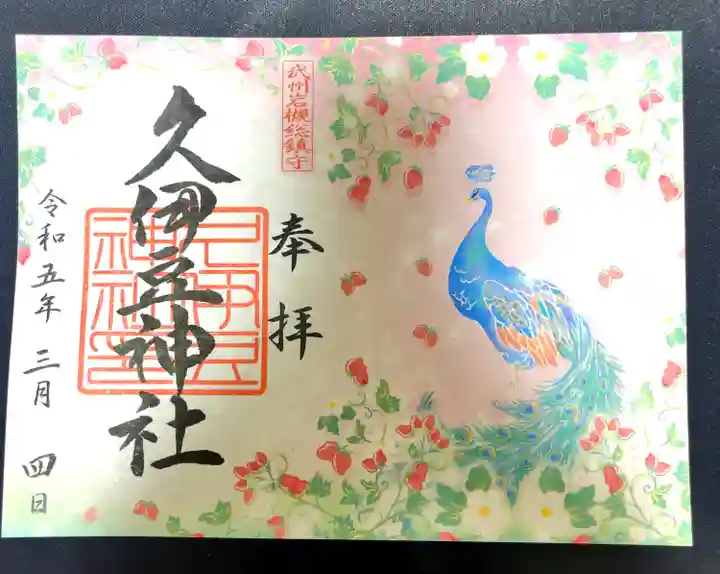 武州岩槻総鎮守
奉拝
久伊豆神社
令和五年 三月 四日